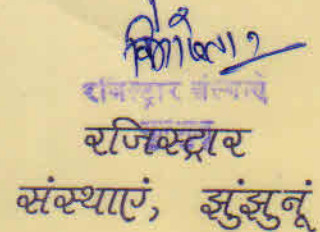 रजिस्ट्रार संस्थाएं
रजिस्ट्रार
संस्थाएं, झुंझुनूं